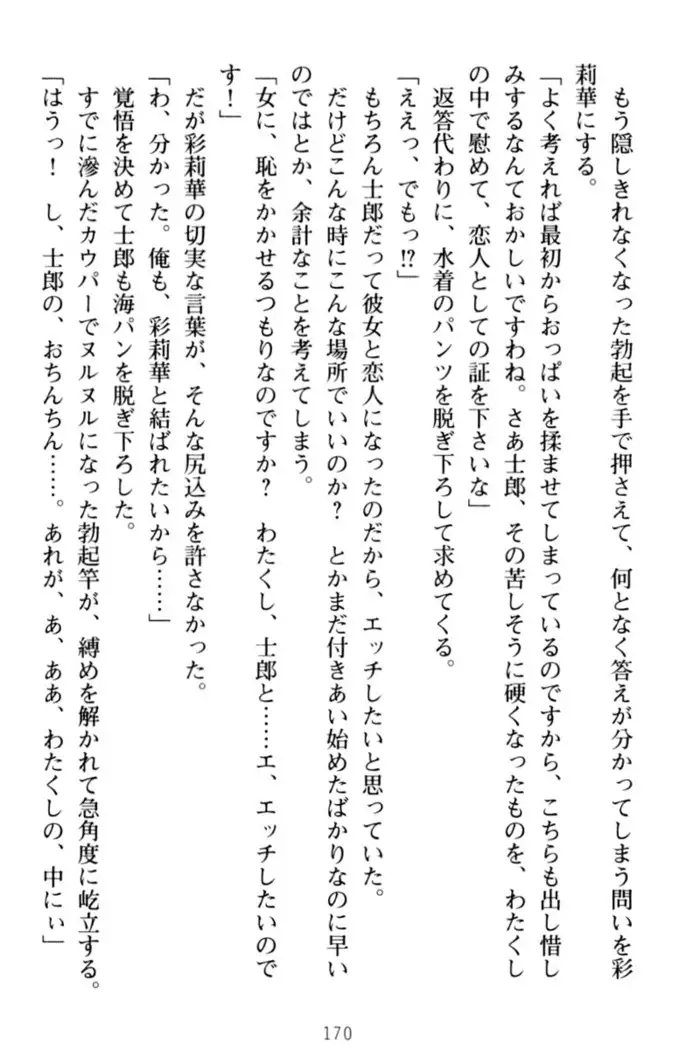 もう隠しきれなくなった勃起を手で押さえて、何となく答えが分かってしまう問いを彩
莉華にする。
「よく考えれば最初からおっぱいを揉ませてしまっているのですから、こちらも出し惜し
みするなんておかしいですわね。さあ士郎、その苦しそうに硬くなったものを、わたくし
の中で慰めて、恋人としての証を下さいな」
返答代わりに、水着のパンツを脱ぎ下ろして求めてくる。
「ええっ、でもっ!?」
もちろん士郎だって彼女と恋人になったのだから、エッチしたいと思っていた。
だけどこんな時にこんな場所でいいのか？　とかまだ付きあい始めたばかりなのに早い
のではとか、余計なことを考えてしまう。
「女に、恥をかかせるつもりなのですか？　わたくし、士郎と……エ、エッチしたいので
す！」
だが彩莉華の切実な言葉が、そんな尻込みを許さなかった。
「わ、分かった。俺も、彩莉華と結ばれたいから……」
覚悟を決めて士郎も海パンを脱ぎ下ろした。
すでに滲んだカウパーでヌルヌルになった勃起竿が、縛めを解かれて急角度に屹立する。
「はうっ！　し、士郎の、おちんちん……。あれが、あ、ああ、わたくしの、中にぃ」
170